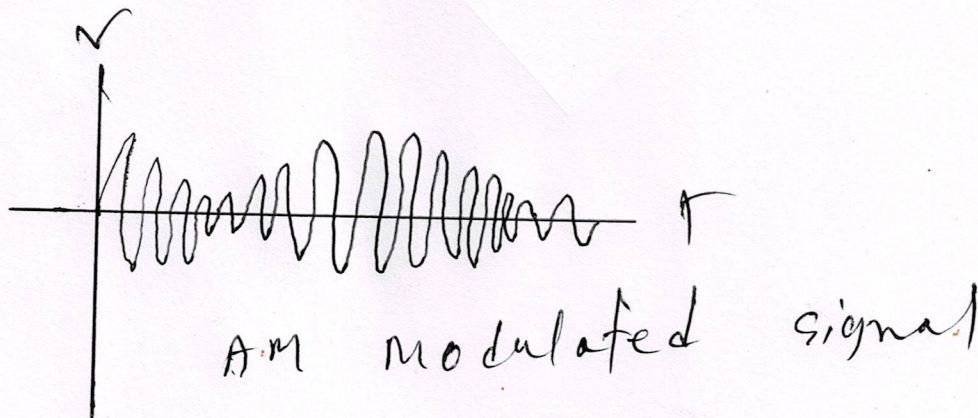 V
T
AM Modulated signal